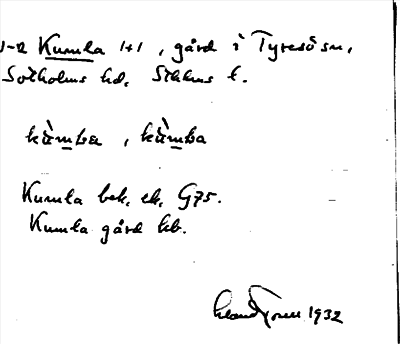 1-2 Kumla 1+1, gård i Tyresö sn,
Sotholms hd, Sthlms l.
kùmla, kùmla
Kumla bek. ek. G75.
Kumla gård kb.
1932